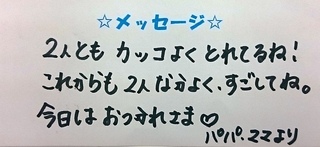 ☆メッセージ☆
2人とも カッコよく とれてるね!
これからも 2人なかよく、すごしてね。
今日は おつかれさま♡
パパ・ママより